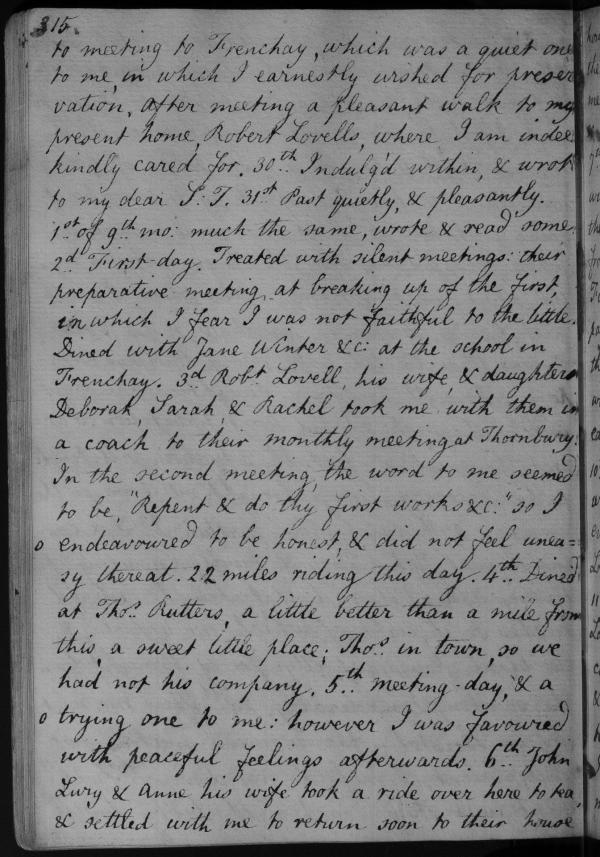 315.
to meeting to Frenchay, which was a quiet one
to me, in which I earnestly wished for preser
vation, after meeting a pleasant walk to my
present home, Robert Lovells, where I am indee
kindly cared for. 30th. Indulg'd within, & wrote
to my dear S: T. 31st Past quietly, & pleasantly.
1st. of 9th mo: much the same, wrote & read some.
2d. First-day. Treated with silent meetings: their
preparative meeting at breaking up of the first,
in which I fear I was not faithful to the little.
Dined with Jane Winter &c: at the school in
Frenchay. 3d Robt. Lovell, his wife, & daughters
Deborah, Sarah & Rachel took me with them in
a coach to their monthly meeting at Thornbury.
In the second meeting, the word to me seemed
to be, "Repent & do thy first works &c:" so I
o endeavoured to be honest, & did not feel unea=
sy thereat. 22 miles riding this day. 4th. Dined
at Thos. Rutters, a little better than a mile from
this, a sweet little place; Thos. in town, so we
had not his company. 5th. meeting-day, & a
o trying one to me: however I was favoured
with peaceful feelings afterwards. 6th. John
Lury & Anne his wife took a ride over here to tea,
& settled with me to return soon to their house